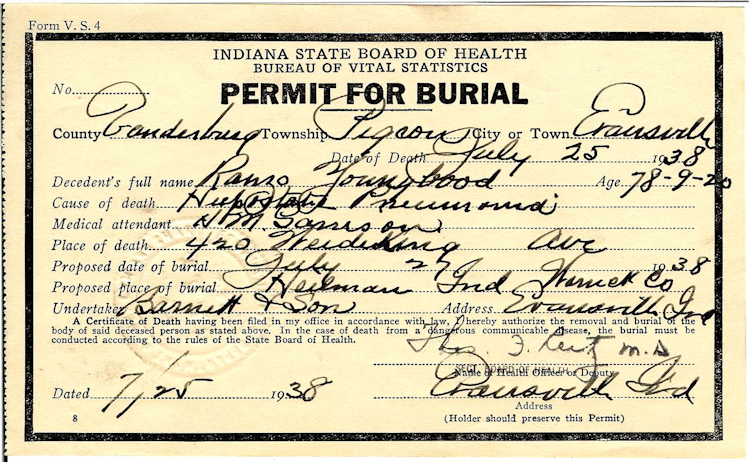 Form V. S. 4
INDIANA STATE BOARD OF HEALTH
BUREAU OF VITAL STATISTICS
No.
PERMIT FOR BURIAL
County Vanderburg Township Pigeon City or Town Evansville
Date of Death July 25 1938
Decedent's full name Youngblood Age 78-9-20
Cause of death Hypostatic Pneumonia
Medical attendant M. Samson
Place of death 420 Ave
Proposed date of burial July 27 1938
Proposed place of burial Heilman Ind Warrick Co
Undertaker Barnett & Son Address Evansville Ind
A Certificate of Death having been filed in my office in accordance with law, I hereby authorize the removal and burial of the
body of said deceased person as stated above. In the case of death from a dangerous communicable disease, the burial must be
conducted according to the rules of the State Board of Health.
M.D
SECT. BOARD OF HEALTH
Name of Health Officer or Deputy
Dated 7/25 1938 Evansville Ind
Address
8 (Holder should preserve this Permit)